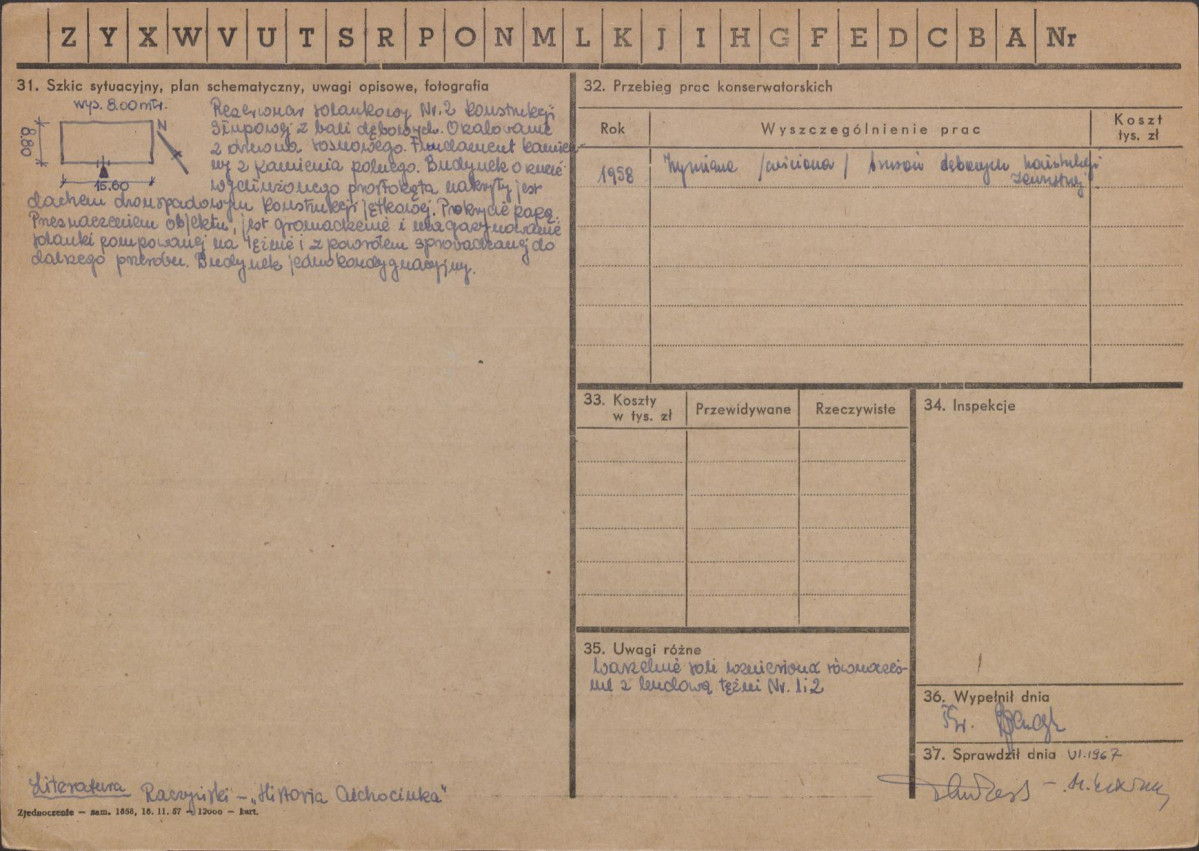 Z Y X W V U T S R P O N M L K J I H G F E D C B A Nr
31. Szkic sytuacyjny, plan schematyczny, uwagi opisowe, fotografia
wys. 8.00 mtr.
8.80
N
15.60
Rezerwuar solankowy Nr. 2 konstrukcji
słupowej z bali dębowych. Oszalowanie
z drewna sosnowego. Fundament kamien-
ny z kamienia polnego. Budynek o rzucie
wydłużonego prostokąta nakryty jest
dachem dwuspadowym konstrukcji jętkowej. Pokrycie papą.
Przeznaczeniem obiektu, jest gromadzenie i magazynowanie
solanki pompowanej na tężnie i z powrotem sprowadzanej do
dalszego przerobu. Budynek jednokondygnacyjny.
Literatura Raczyński – "Historia Ciechocinka"
Zjednoczenie — zam. 1856, 18. 11. 57 — 12000 — kart.
32. Przebieg prac konserwatorskich
Rok
Wyszczególnienie prac
Koszt
tys. zł
1958
Wymiana /ściana/ dębowych konstrukcji
33. Koszty
w tys. zł
Przewidywane
Rzeczywiste
34. Inspekcje
35. Uwagi różne
Warzelnię soli wzniesiono równocześ-
nie z budową tężni Nr. 1 i 2
36. Wypełnił dnia
37. Sprawdził dnia VI.1967